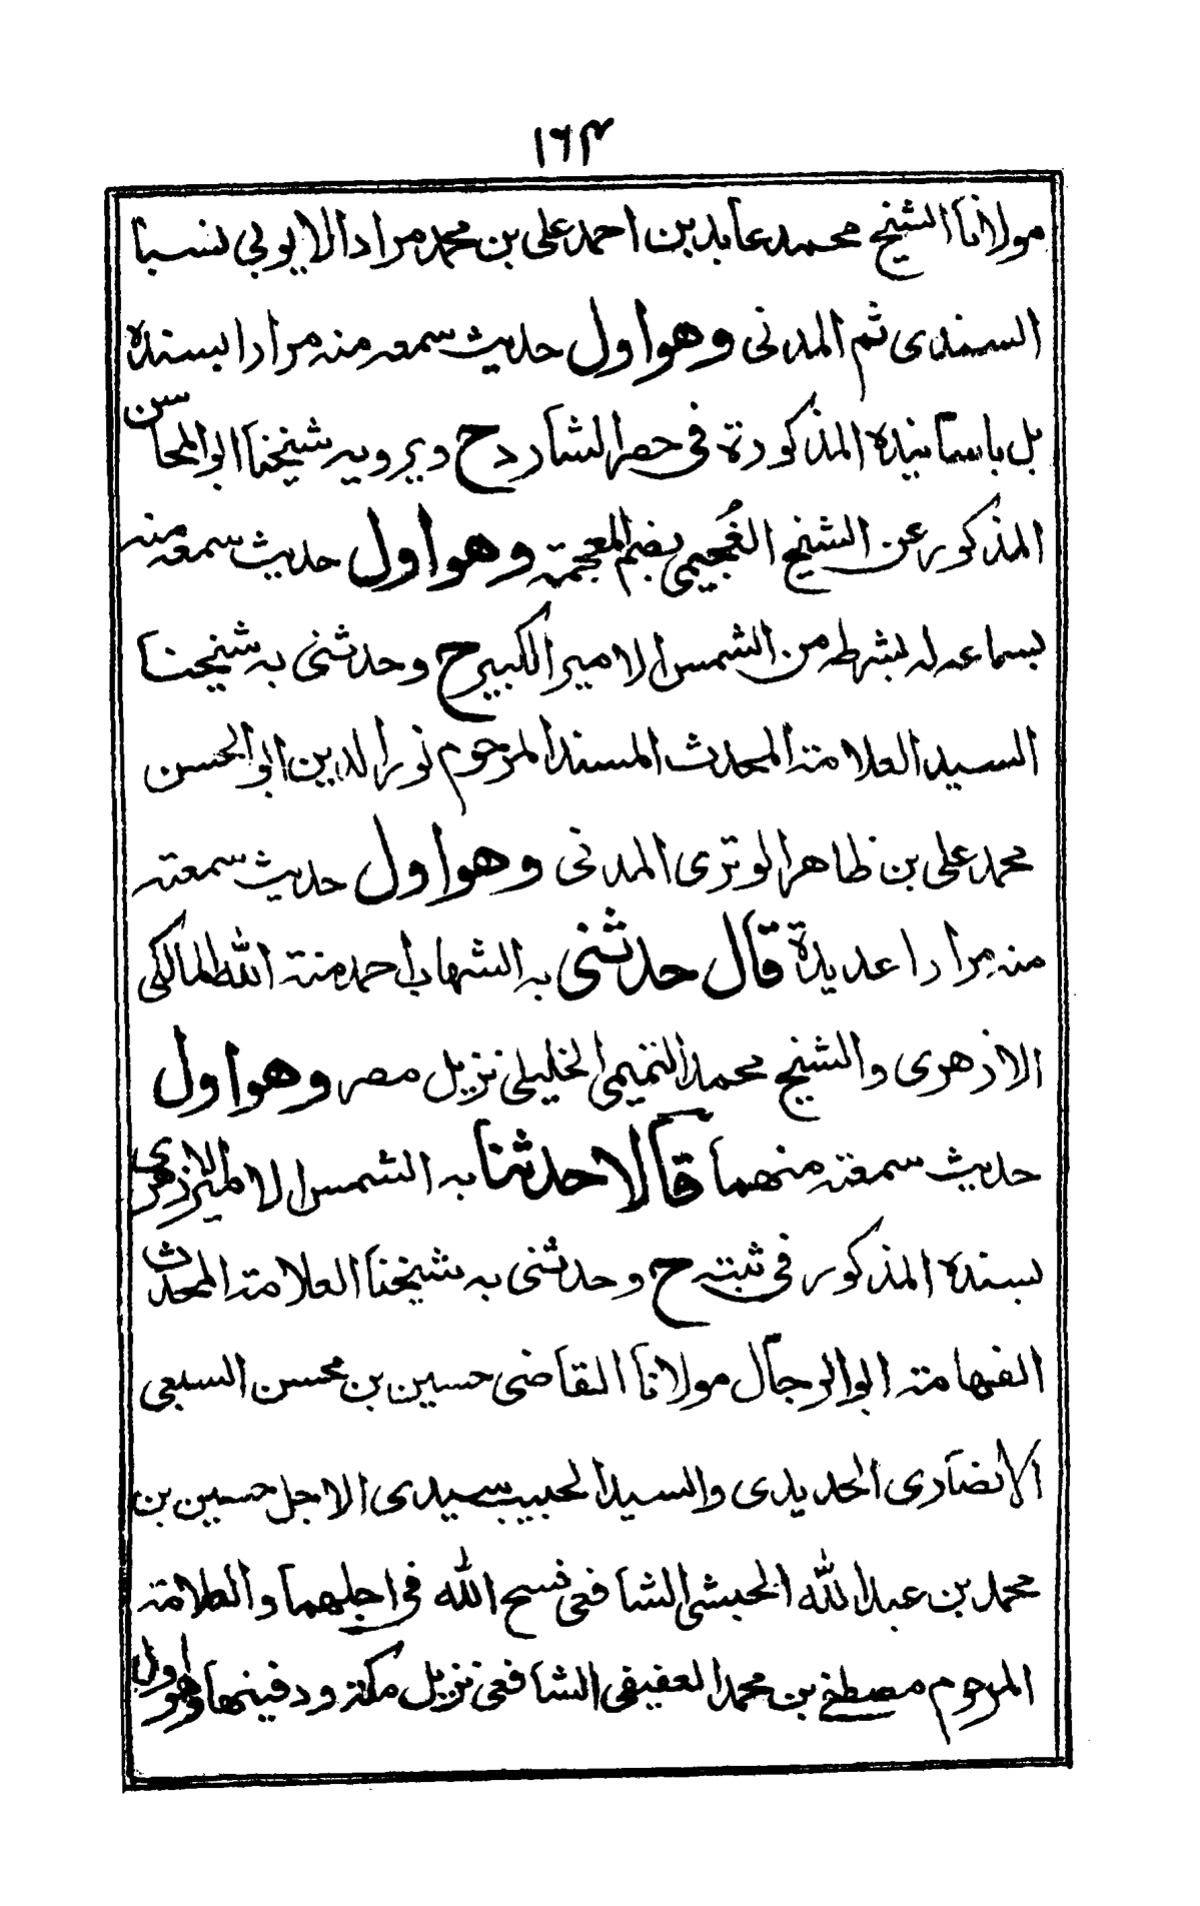 ١٦٤
مولانا الشيخ محمد عابد بن احمد علي بن محمد مراد الايوبي نسبا
السندى ثم المدنى وهو اول حديث سمعه منه مرارا بسنده
بل باسانيده المذكورة فى حصر الشارد ح ويرويه شيخنا ابو المحاسن
المذكور عن الشيخ الغُجيمى بضم المعجمة وهو اول حديث سمعه منه
بسماعه له بشرطه من الشمس الامير الكبير ح وحدثنى به شيخنا
السيد العلامة المحدث المسند المرحوم نور الدين ابو الحسن
محمد على بن ظاهر الوترى المدنى وهو اول حديث سمعته
منه مرارا عديدة قال حدثنى به الشهاب احمد منة الله المالكى
الازهرى والشيخ محمد التميمى الخليلى نزيل مصر وهو اول
حديث سمعته منهما قالا حدثنا به الشمس الامير الازهرى
بسنده المذكور فى ثبته ح وحدثنى به شيخنا العلامة المحدث
الفهامة ابو الرجال مولانا القاضى حسين بن محسن السبعى
الانصارى الحديدى والسيد الحبيب سيدى الاجل حسين بن
محمد بن عبد الله الحبشى الشافعى فسح الله فى اجلهما والعلامة
المرحوم مصطفى بن محمد العفيفى الشافعى نزيل مكة ودفينها وهو اول